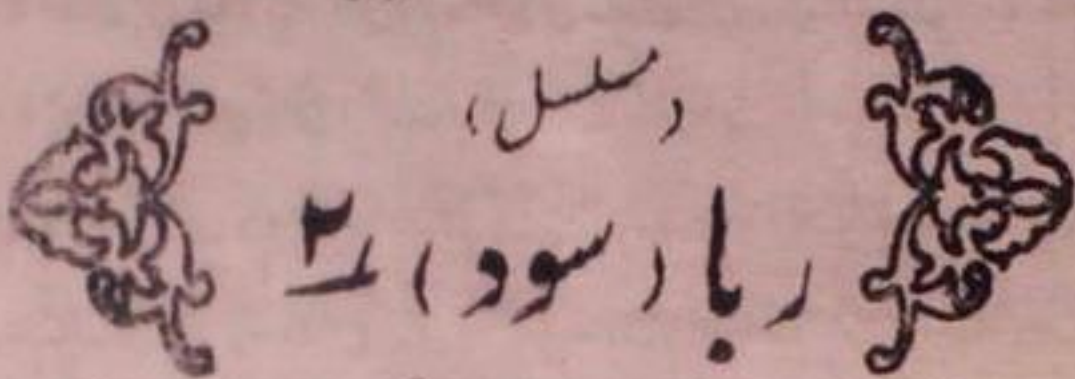 (مسلسل)
ربا (سود) ۲